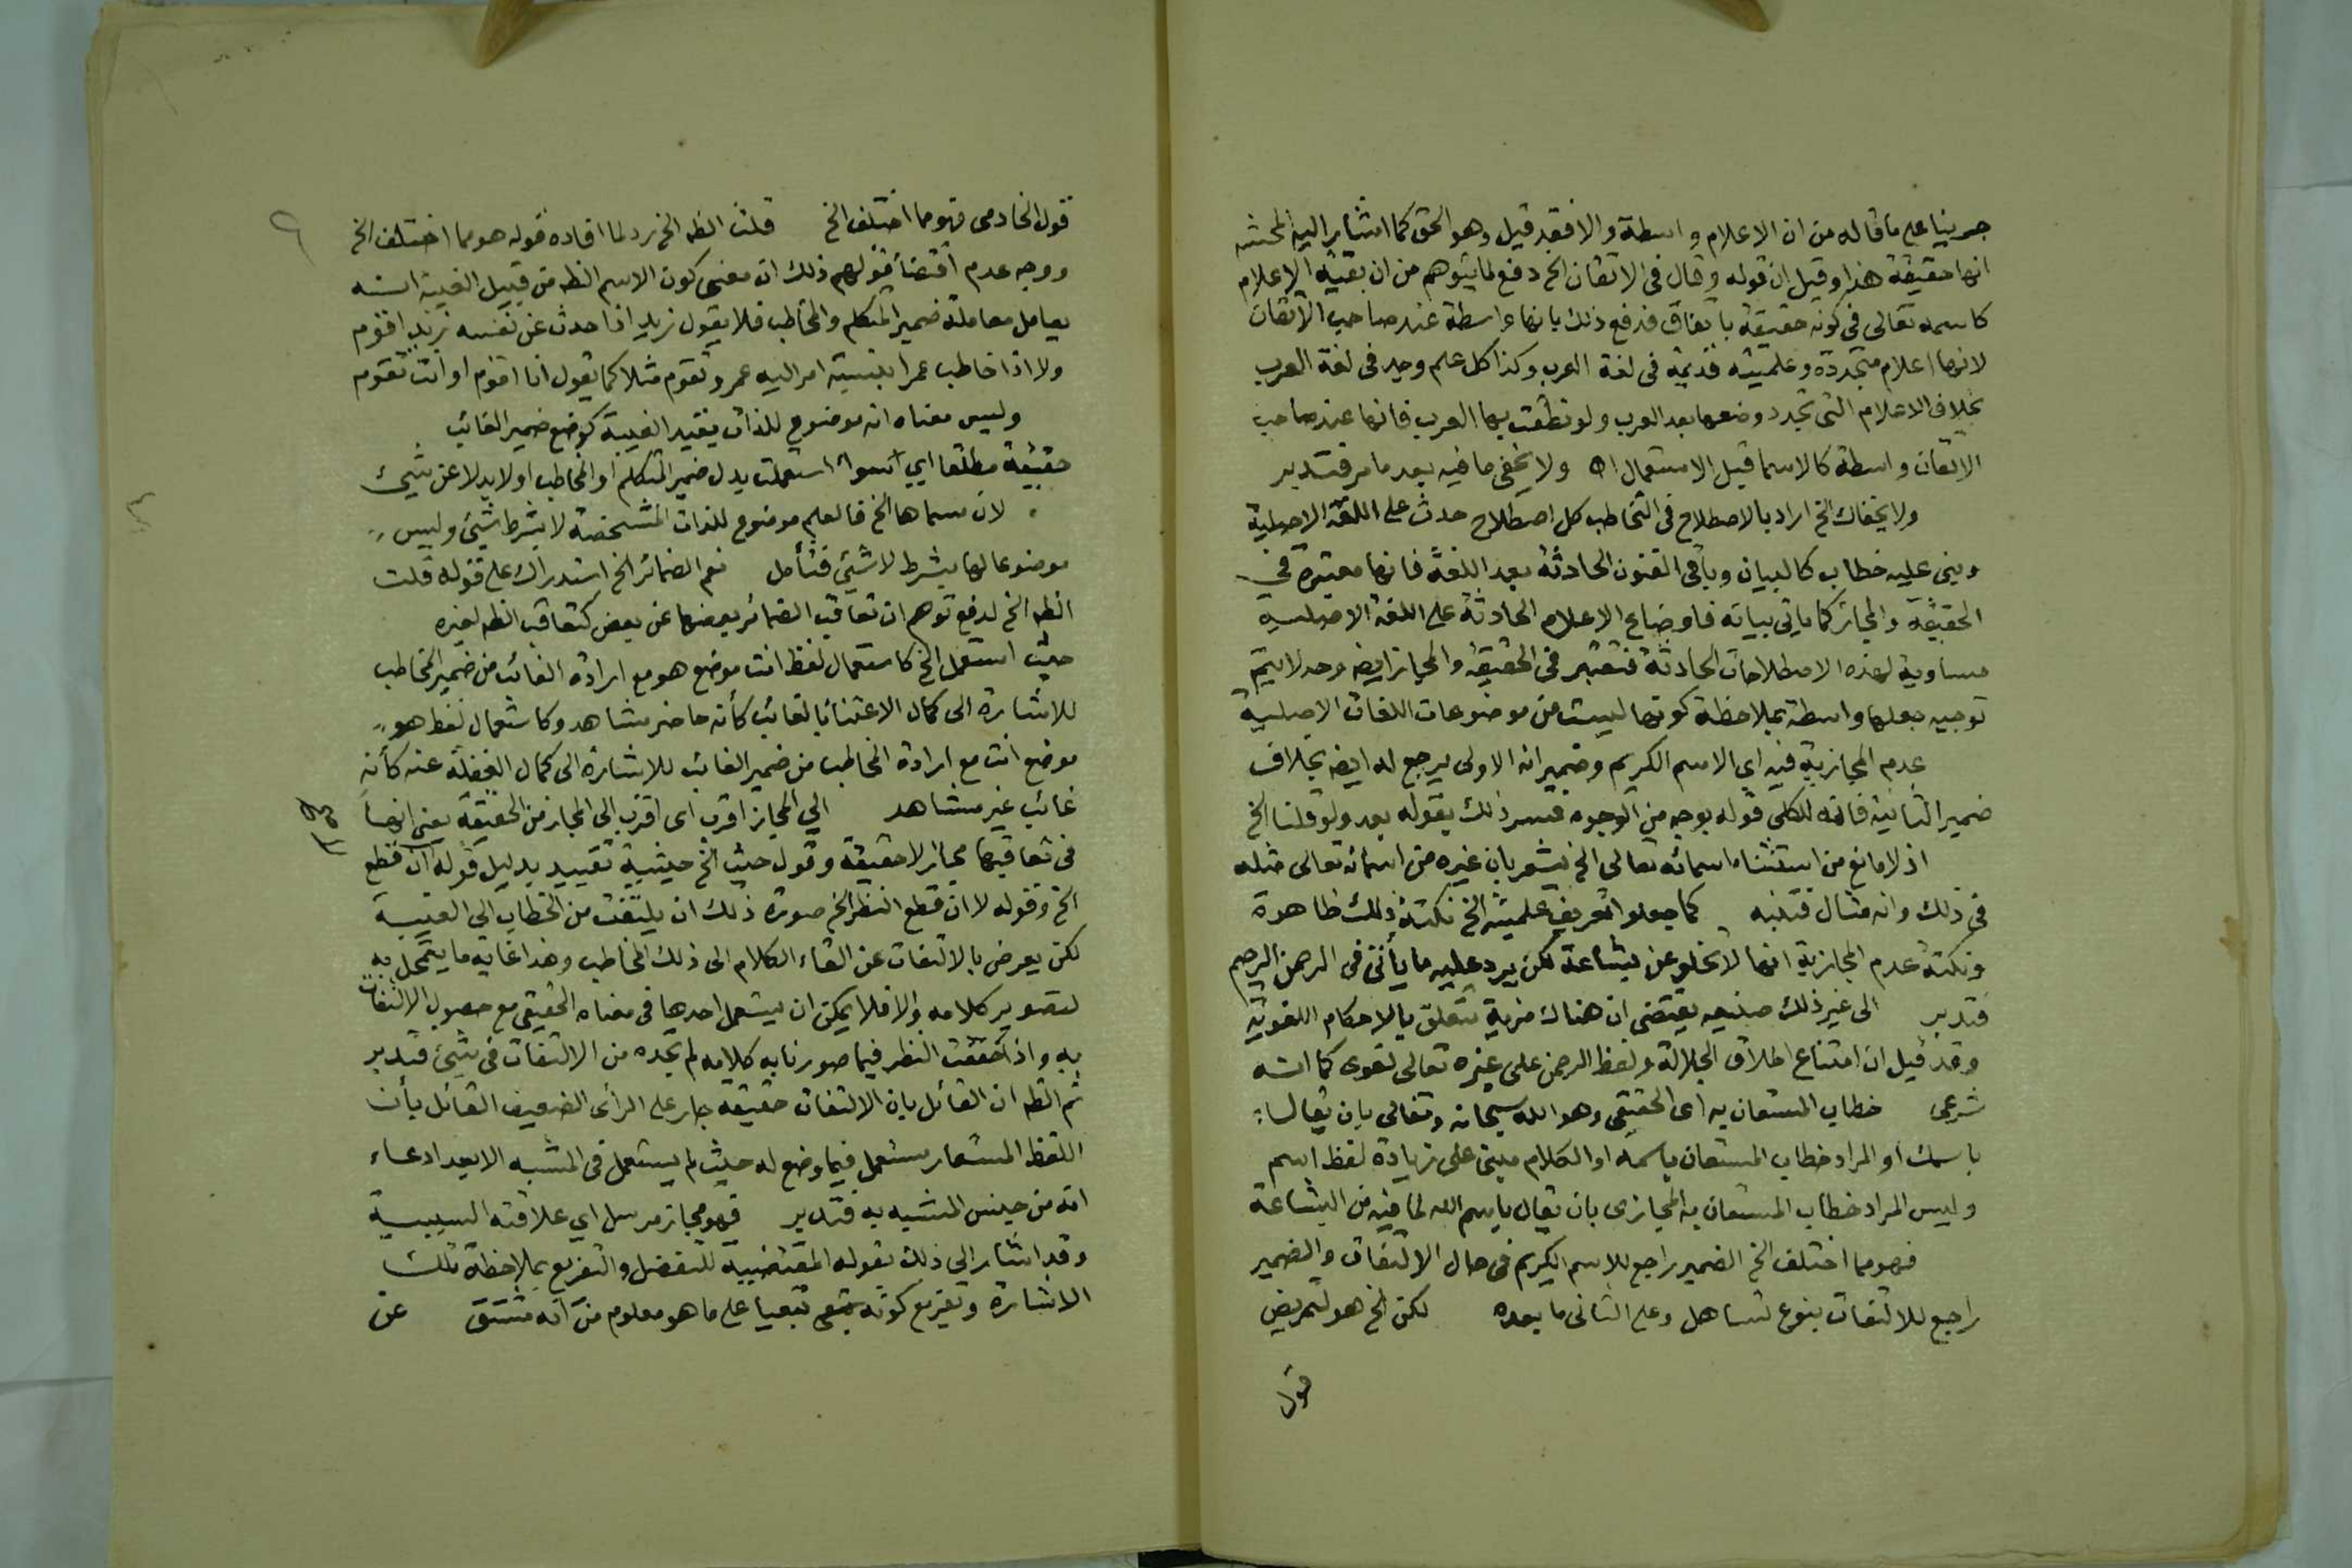 جرينا على ما قاله من ان الاعلام واسطة والا فقد قيل وهو الحق كما اشار اليه المحشى
انها حقيقة هذا وقيل ان قوله وقال فى الاتقان الخ دفع لما يتوهم من ان بقية الاعلام
كاسمه تعالى فى كونه حقيقة باتفاق فدفع ذلك بانها واسطة عند صاحب الاتقان
لانها اعلام متجددة وعلميته قديمة فى لغة العرب وكذا كل علم وجد فى لغة العرب
بخلاف الاعلام التى تجدد وضعها بعد العرب ولو نطقت بها العرب فانها عند صاحب
الاتقان واسطة كالاسما قبل الاستعمال اه ولا يخفى ما فيه بعد ما مر فتدبر
ولا يخفاك الخ اراد بالاصطلاح فى التخاطب كل اصطلاح حدث على اللغة الاصلية
وبنى عليه خطاب كالبيان وباقى الفنون الحادثة بعد اللغة فانها معتبرة فى
الحقيقة والمجاز كما ياتى بيانه فاوضاع الاعلام الحادثة على اللغة الاصلية
مساوية لهذه الاصطلاحات الحادثة فتعتبر فى الحقيقة والمجاز ايضه وحد لا يتم
توجيه جعلها واسطة بملاحظة كونها ليست من موضوعات اللغات الاصلية
عدم المجازية فيه اى الاسم الكريم وضمير انه الاولى يرجع له ايضه بخلاف
ضمير الثانية فانه للكلى قوله بوجه من الوجوه فسر ذلك بقوله بعد ولو قلنا الخ
اذ لا مانع من استثناء اسمائه تعالى الخ يشعر بان غيره من اسمائه تعالى مثله
فى ذلك وانه مثال فتنبه كما جعلوا تعريف علميته الخ نكتة ذلك ظاهرة
ونكتة عدم المجازية انها لا تخلو عن بشاعة لكن يرد عليه ما يأتى فى الرحمن الرحيم
فتدبر الى غير ذلك صنيعه يقتضى ان هناك مزية تتعلق بالاحكام اللغوية
وقد قيل ان امتناع اطلاق الجلالة ولفظ الرحمن على غيره تعالى لغوى كما انه
شرعى خطاب المستعان به اى الحقيقى وهو الله سبحانه وتعالى بان يقال
باسمك او المراد خطاب المستعان باسمه او الكلام مبنى على زيادة لفظ اسم
وليس المراد خطاب المستعان به المجازى بان يقال ياسم الله لما فيه من البشاعة
فهو مما اختلف الخ الضمير راجع للاسم الكريم فى حال الالتفات والضمير
راجع للالتفات بنوع تساهل وعلى الثانى ما بعده لكن الخ هو تمريض
قول
قول الخادمى فهو مما اختلف الخ قلت الظه الخ رد لما افاده قوله هو مما اختلف الخ
ووجه عدم اقتضاء قولهم ذلك ان معنى كون الاسم الظه من قبيل الغيبة انه
يعامل معاملة ضمير المتكلم والمخاطب فلا يقول زيد اذا حدث عن نفسه زيد اقوم
ولا اذا خاطب عمرا بنسبة امر اليه عمرو تقوم مثلا كما يقول انا اقوم او انت تقوم
وليس معناه انه موضوع للذات بقيد الغيبة كوضع ضمير الغائب
حقيقة مطلقا اي سواء استعملت بدل ضمير المتكلم او المخاطب او لا بدلا عن شيئ
لان مسماها الخ فالعلم موضوع للذات المشخصة لا بشرط شيئ وليس
موضوعا لها بشرط لا شيئ فتأمل نعم الضمائر الخ استدراك على قوله قلت
الظه الخ لدفع توهم ان تعاقب الضمائر بعضها عن بعض كتعاقب الظه لغيره
حيث استعمل الخ كاستعمال لفظ انت موضع هو مع ارادة الغائب من ضمير المخاطب
للاشارة الى كمال الاعتناء بالغائب كأنه حاضر مشاهد وكاستعمال لفظ هو
موضع انت مع ارادة المخاطب من ضمير الغائب للاشارة الى كمال الغفلة عنه كأنه
غائب غير مشاهد الي المجاز اقرب اى اقرب الى المجاز من الحقيقة يعنى انها
فى تعاقبها مجاز لا حقيقة وقول حيث الخ حيثية تقييد بدليل قوله ان قطع
الخ وقوله لا ان قطع النظر الخ صورة ذلك ان يلتفت من الخطاب الى الغيبة
لكن يعرض بالالتفات عن القاء الكلام الى ذلك المخاطب وهذا غاية ما يتمحل به
لتصوير كلامه والا فلا يمكن ان يستعمل احدها فى معناه الحقيقى مع حصول الالتفات
به واذا حققت النظر فيما صورنا به كلامه لم تجده من الالتفات فى شيئ فتدبر
ثم الظه ان القائل بان الالتفات حقيقة جار على الرأى الضعيف القائل بأن
اللفظ المستعار مستعمل فيما وضع له حيث لم يستعمل فى المشبه الا بعد ادعاء
انه من جنس المشبه به فتدبر فهو مجاز مرسل اي علاقته السببية
وقد اشار الى ذلك بقوله المقتضيية للتفضل والتفريع بملاحظة تلك
الاشارة وتفريع كونه تبعيا على ما هو معلوم من انه مشتق عن